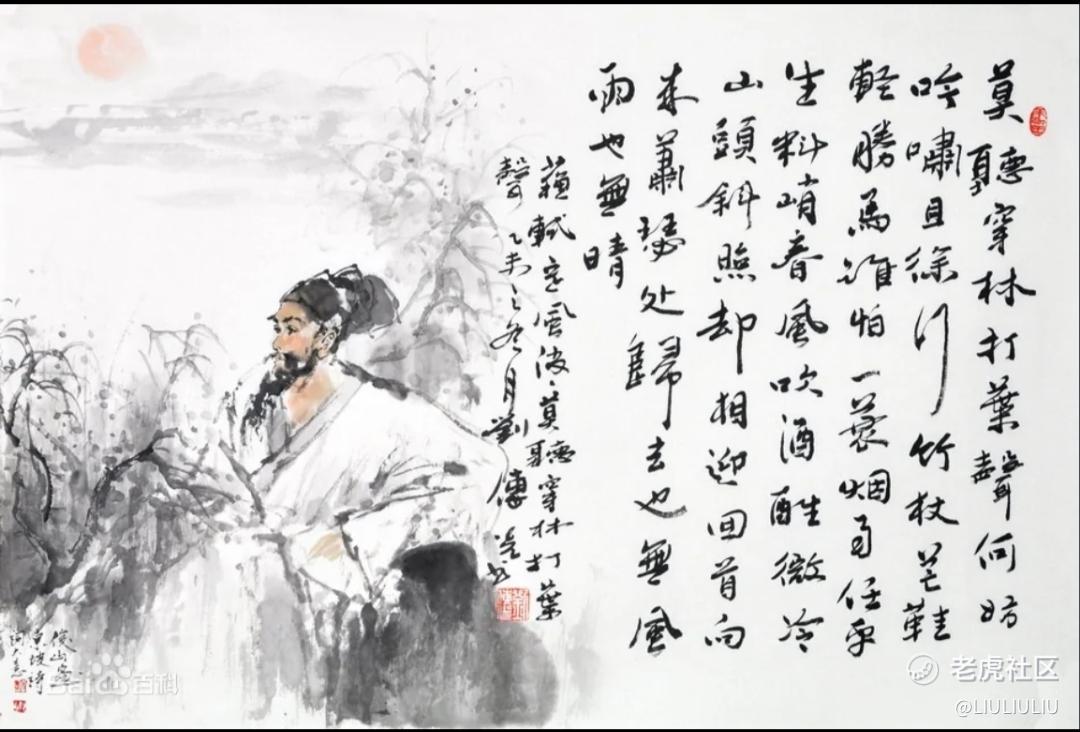 莫聽穿林打葉聲何妨
吟嘯且徐行竹杖芒鞋
輕勝馬誰怕一蓑烟雨任平
生料峭春風吹酒醒微冷
山頭斜照却相迎回首向
来蕭瑟处歸去也無風
雨也無晴
蘇軾定風波·莫聽穿林打葉
聲乙未之冬月劉傳
俊山寫
東坡詩
詞大意
Baidu百科
老虎社区
@LIULIULIU